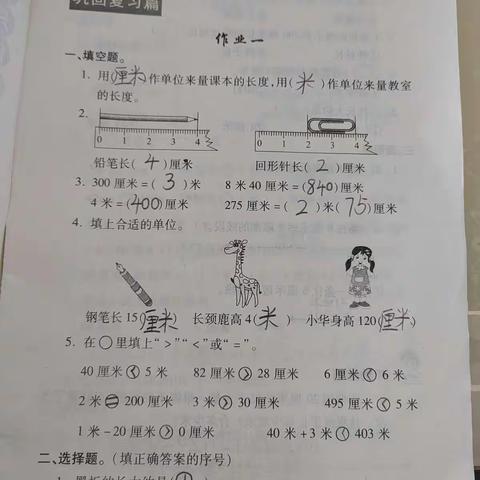 巩固复习篇
作业一
一、填空题。
1. 用(厘米)作单位来量课本的长度,用(米)作单位来量教室
的长度。
2.
0 1 2 3 4
0 1 2 3 4
铅笔长(4)厘米 回形针长(2)厘米
3. 300 厘米=(3)米 8 米 40 厘米=(840)厘米
4 米=(400)厘米 275 厘米=(2)米(75)厘米
4. 填上合适的单位。
钢笔长 15(厘米) 长颈鹿高 4(米) 小华身高 120(厘米)
5. 在○里填上“>”“<”或“=”。
40 厘米<5 米 82 厘米>28 厘米 6 厘米<6 米
2 米=200 厘米 3 米>30 厘米 495 厘米<5 米
1 米-20 厘米>0 厘米 40 米+3 米<403 米
二、选择题。(填正确答案的序号)